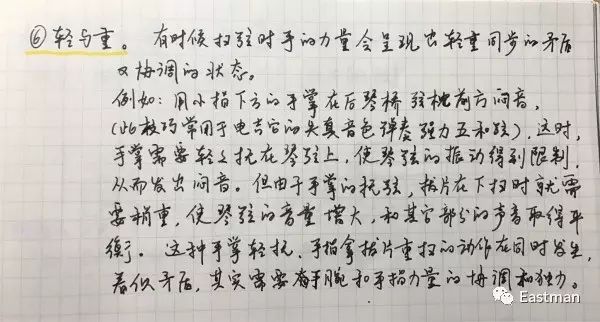 ⑥ 轻与重。 有时候扫弦时手的力量会呈现出轻重同步的矛盾
又协调的状态。
例如:用小指下方的手掌在后琴桥弦枕前方闷音,
(此技巧常用于电吉它的失真音色弹奏强力五和弦),这时,
手掌需要轻轻抚在琴弦上,使琴弦的振动得到限制,
从而发出闷音。但由于手掌的抚弦,拨片在下扫时就需
要稍重,使琴弦的音量增大,和其它部分的声音取得平
衡。这种手掌轻抚,手指拿拨片重扫的动作在同时发生,
看似矛盾,其实需要有手腕和手指力量的协调和独力。
Eastman